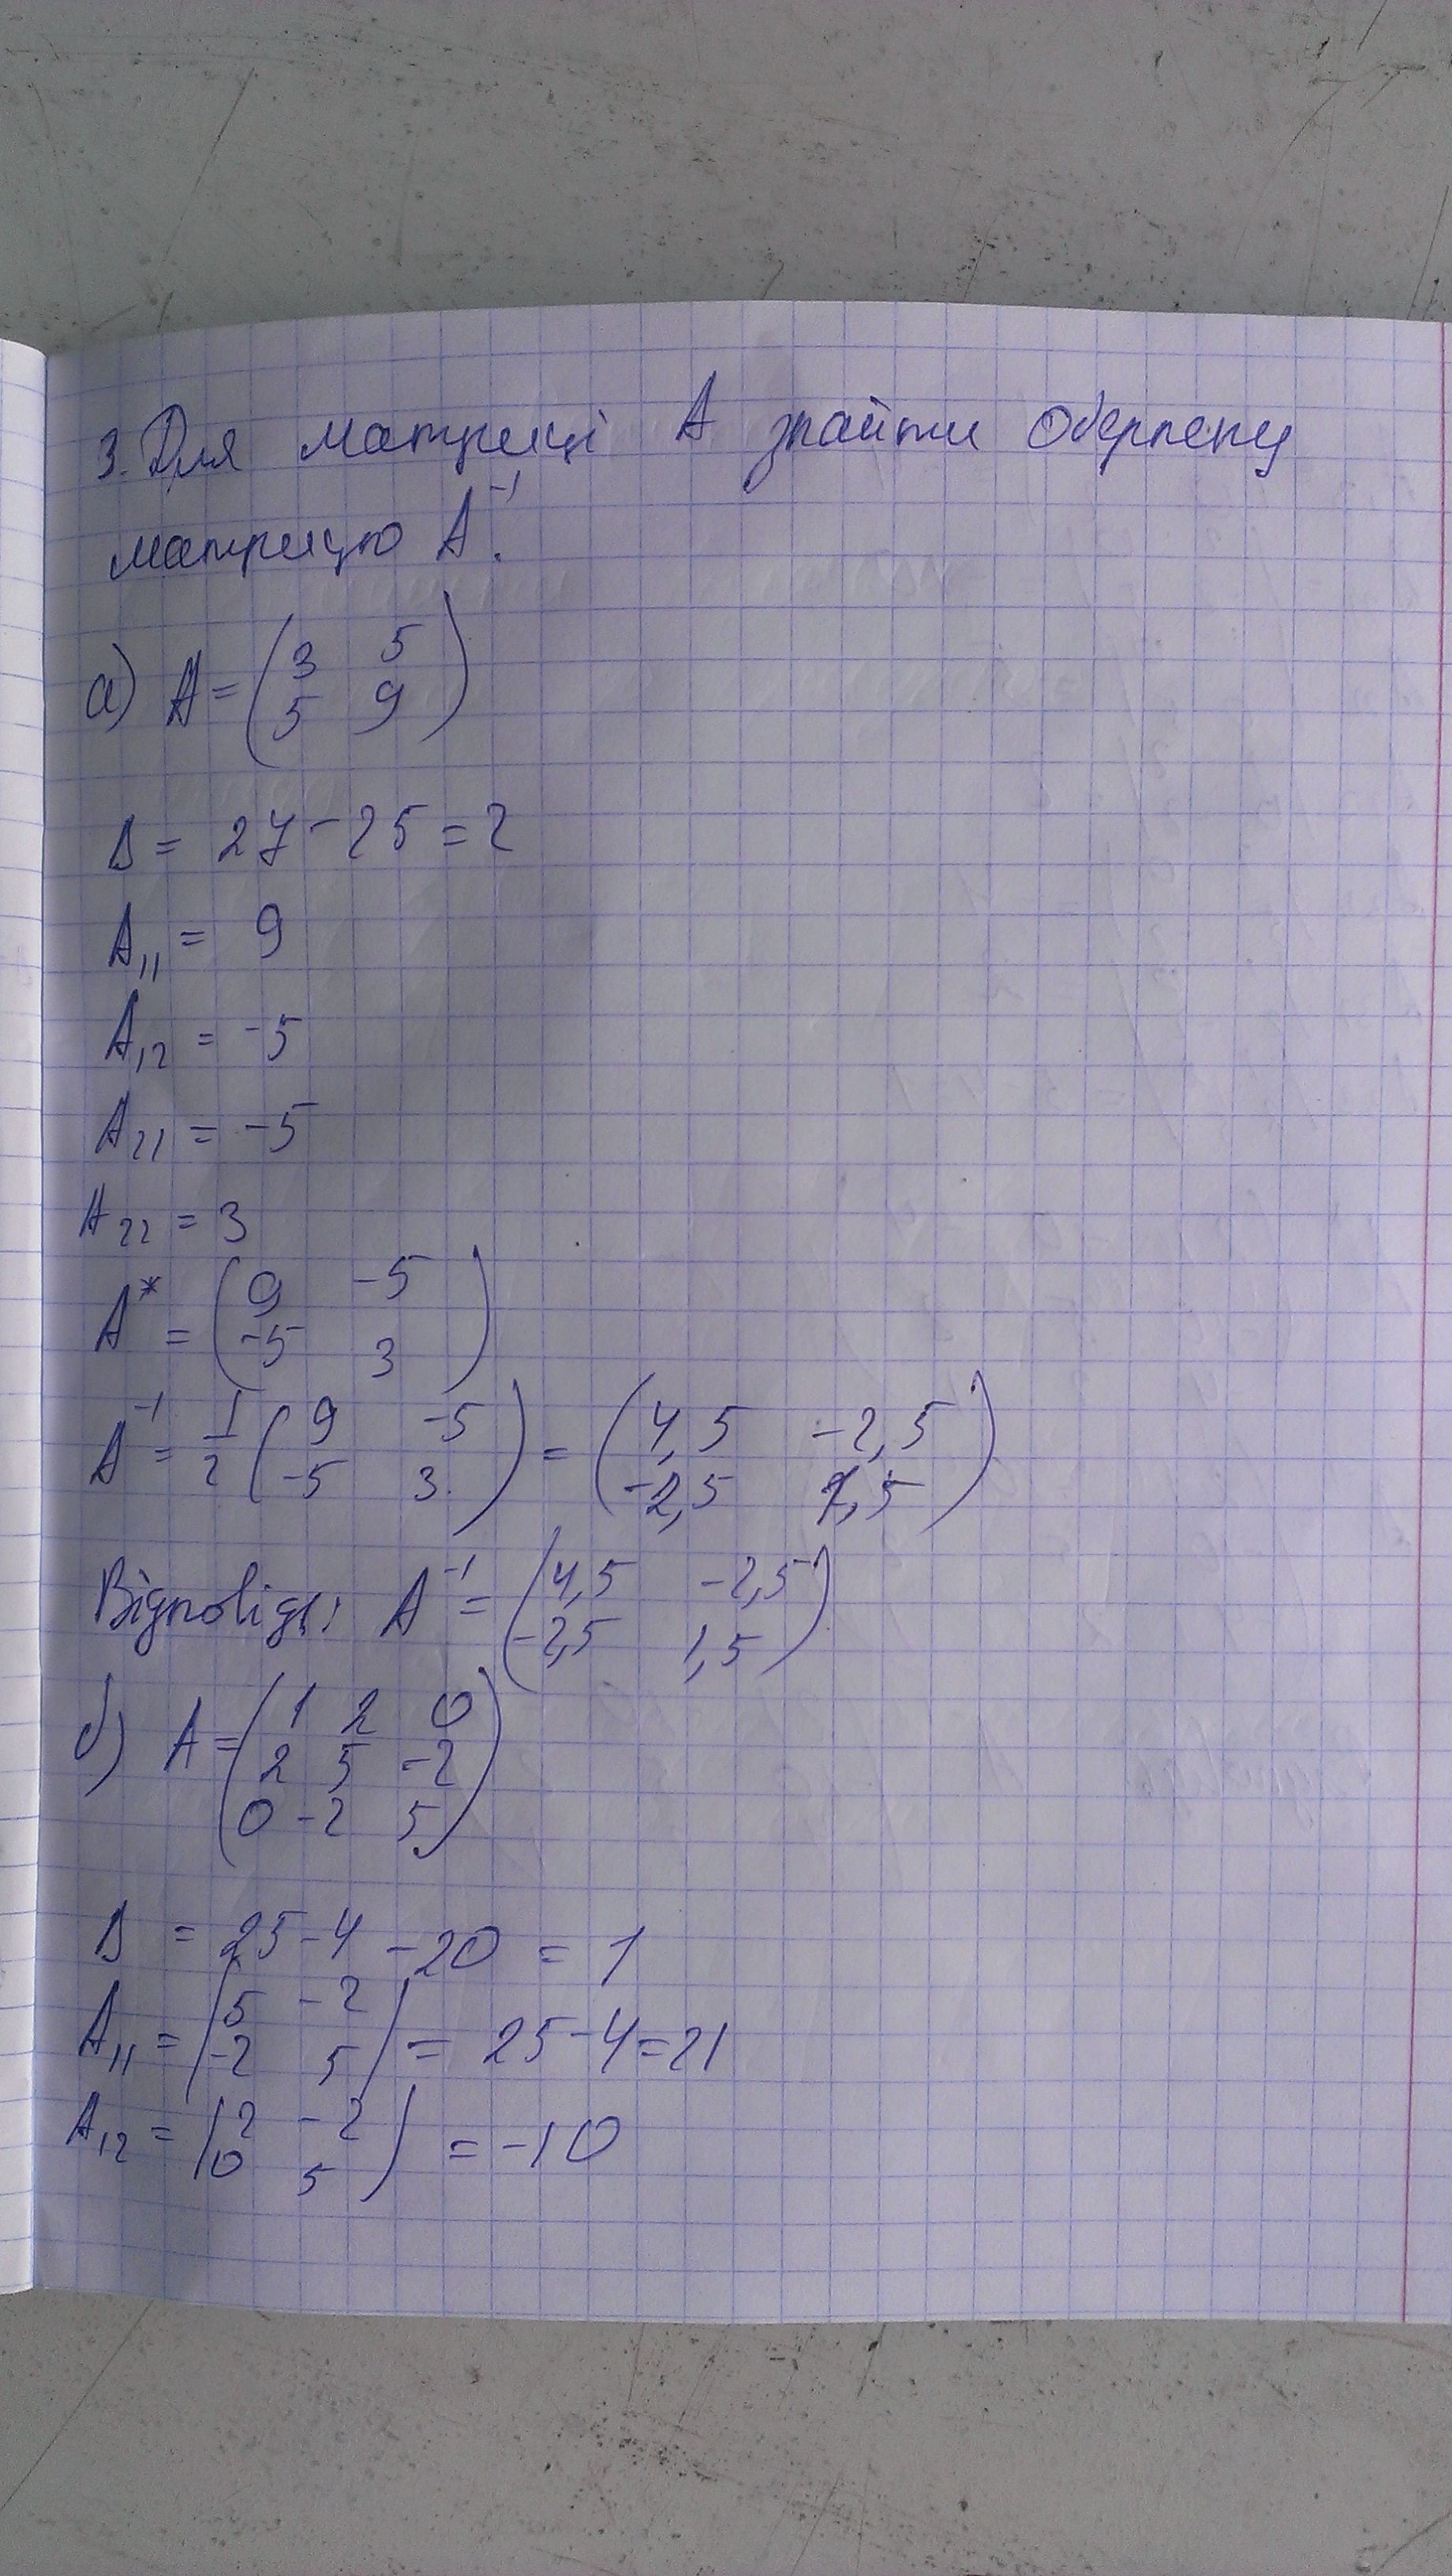 3. Для матриці А знайти обернену
матрицю A⁻¹.
а) A = (3 5
5 9)
Δ = 27 - 25 = 2
A₁₁ = 9
A₁₂ = -5
A₂₁ = -5
A₂₂ = 3
A* = (9 -5
-5 3)
A⁻¹ = 1/2 (9 -5
-5 3) = (4,5 -2,5
-2,5 1,5)
Відповідь: A⁻¹ = (4,5 -2,5
-2,5 1,5)
б) A = (1 2 0
2 5 -2
0 -2 5)
Δ = 25 - 4 - 20 = 1
A₁₁ = |5 -2
-2 5| = 25 - 4 = 21
A₁₂ = |2 -2
0 5| = -10